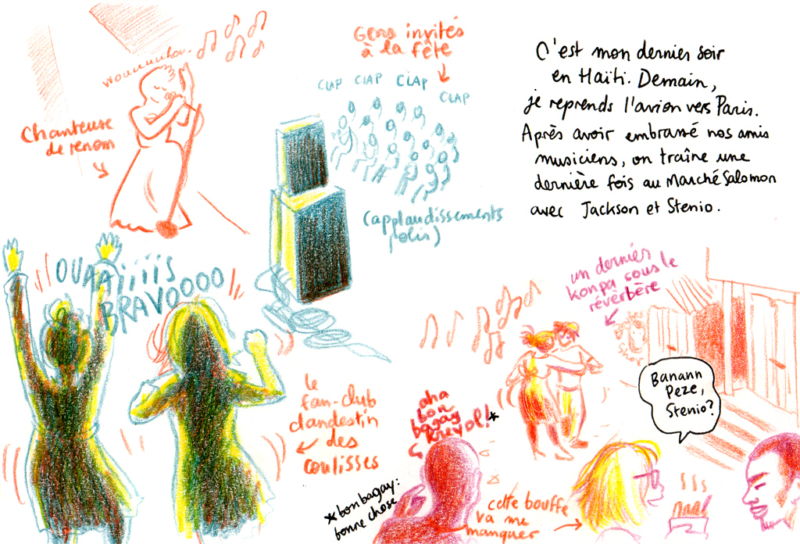 wouuuuhou..
Chanteuse
de renom
Gens invités
à la fête
CLAP CLAP CLAP
CLAP
(applaudissements
polis)
C'est mon dernier soir
en Haïti. Demain,
je reprends l'avion vers Paris.
Après avoir embrassé nos amis
musiciens, on traîne une
dernière fois au Marché Salomon
avec Jackson et Stenio.
OUAAiiiiS
BRAVOOOO
le
fan-club
clandestin
des
coulisses
un dernier
konpa sous le
réverbère
Banann
Peze,
Stenio?
aha
bon
bagay
*bon bagay:
bonne chose
cette bouffe
va me
manquer